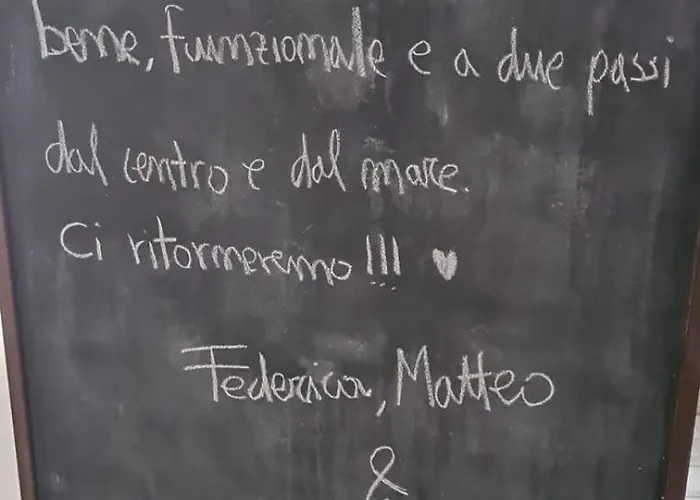 bene, funzionale e a due passi
dal centro e dal mare.
Ci ritorneremo!!! ♥
Federica, Matteo
&